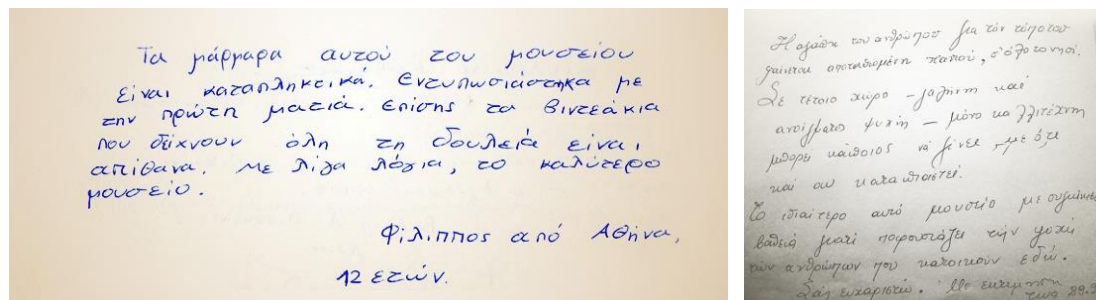 Τα μάρμαρα αυτού του μουσείου
είναι καταπληκτικά. Εντυπωσιάστηκα με
την πρώτη ματιά. Επίσης τα βιντεάκια
που δείχνουν όλη τη δουλειά είναι
απίθανα. Με λίγα λόγια, το καλύτερο
μουσείο.
Φίλιππος από Αθήνα,
12 ετών.
Η αγάπη του ανθρώπου για τον τόπο του
φαίνεται παντού, σ' όλο το νησί.
Σε τέτοιο χώρο – γαλήνη και
ανοίγματος ψυχής – μόνο καλλιτέχνη
μπορεί κάποιος να γίνει, με ό,τι
και αν καταπιαστεί.
Το ιδιαίτερο αυτό μουσείο με συγκίνησε
βαθειά γιατί παρουσιάζει την ψυχή
των ανθρώπων που κατοικούν εδώ.
Σας ευχαριστώ. Με εκτίμηση